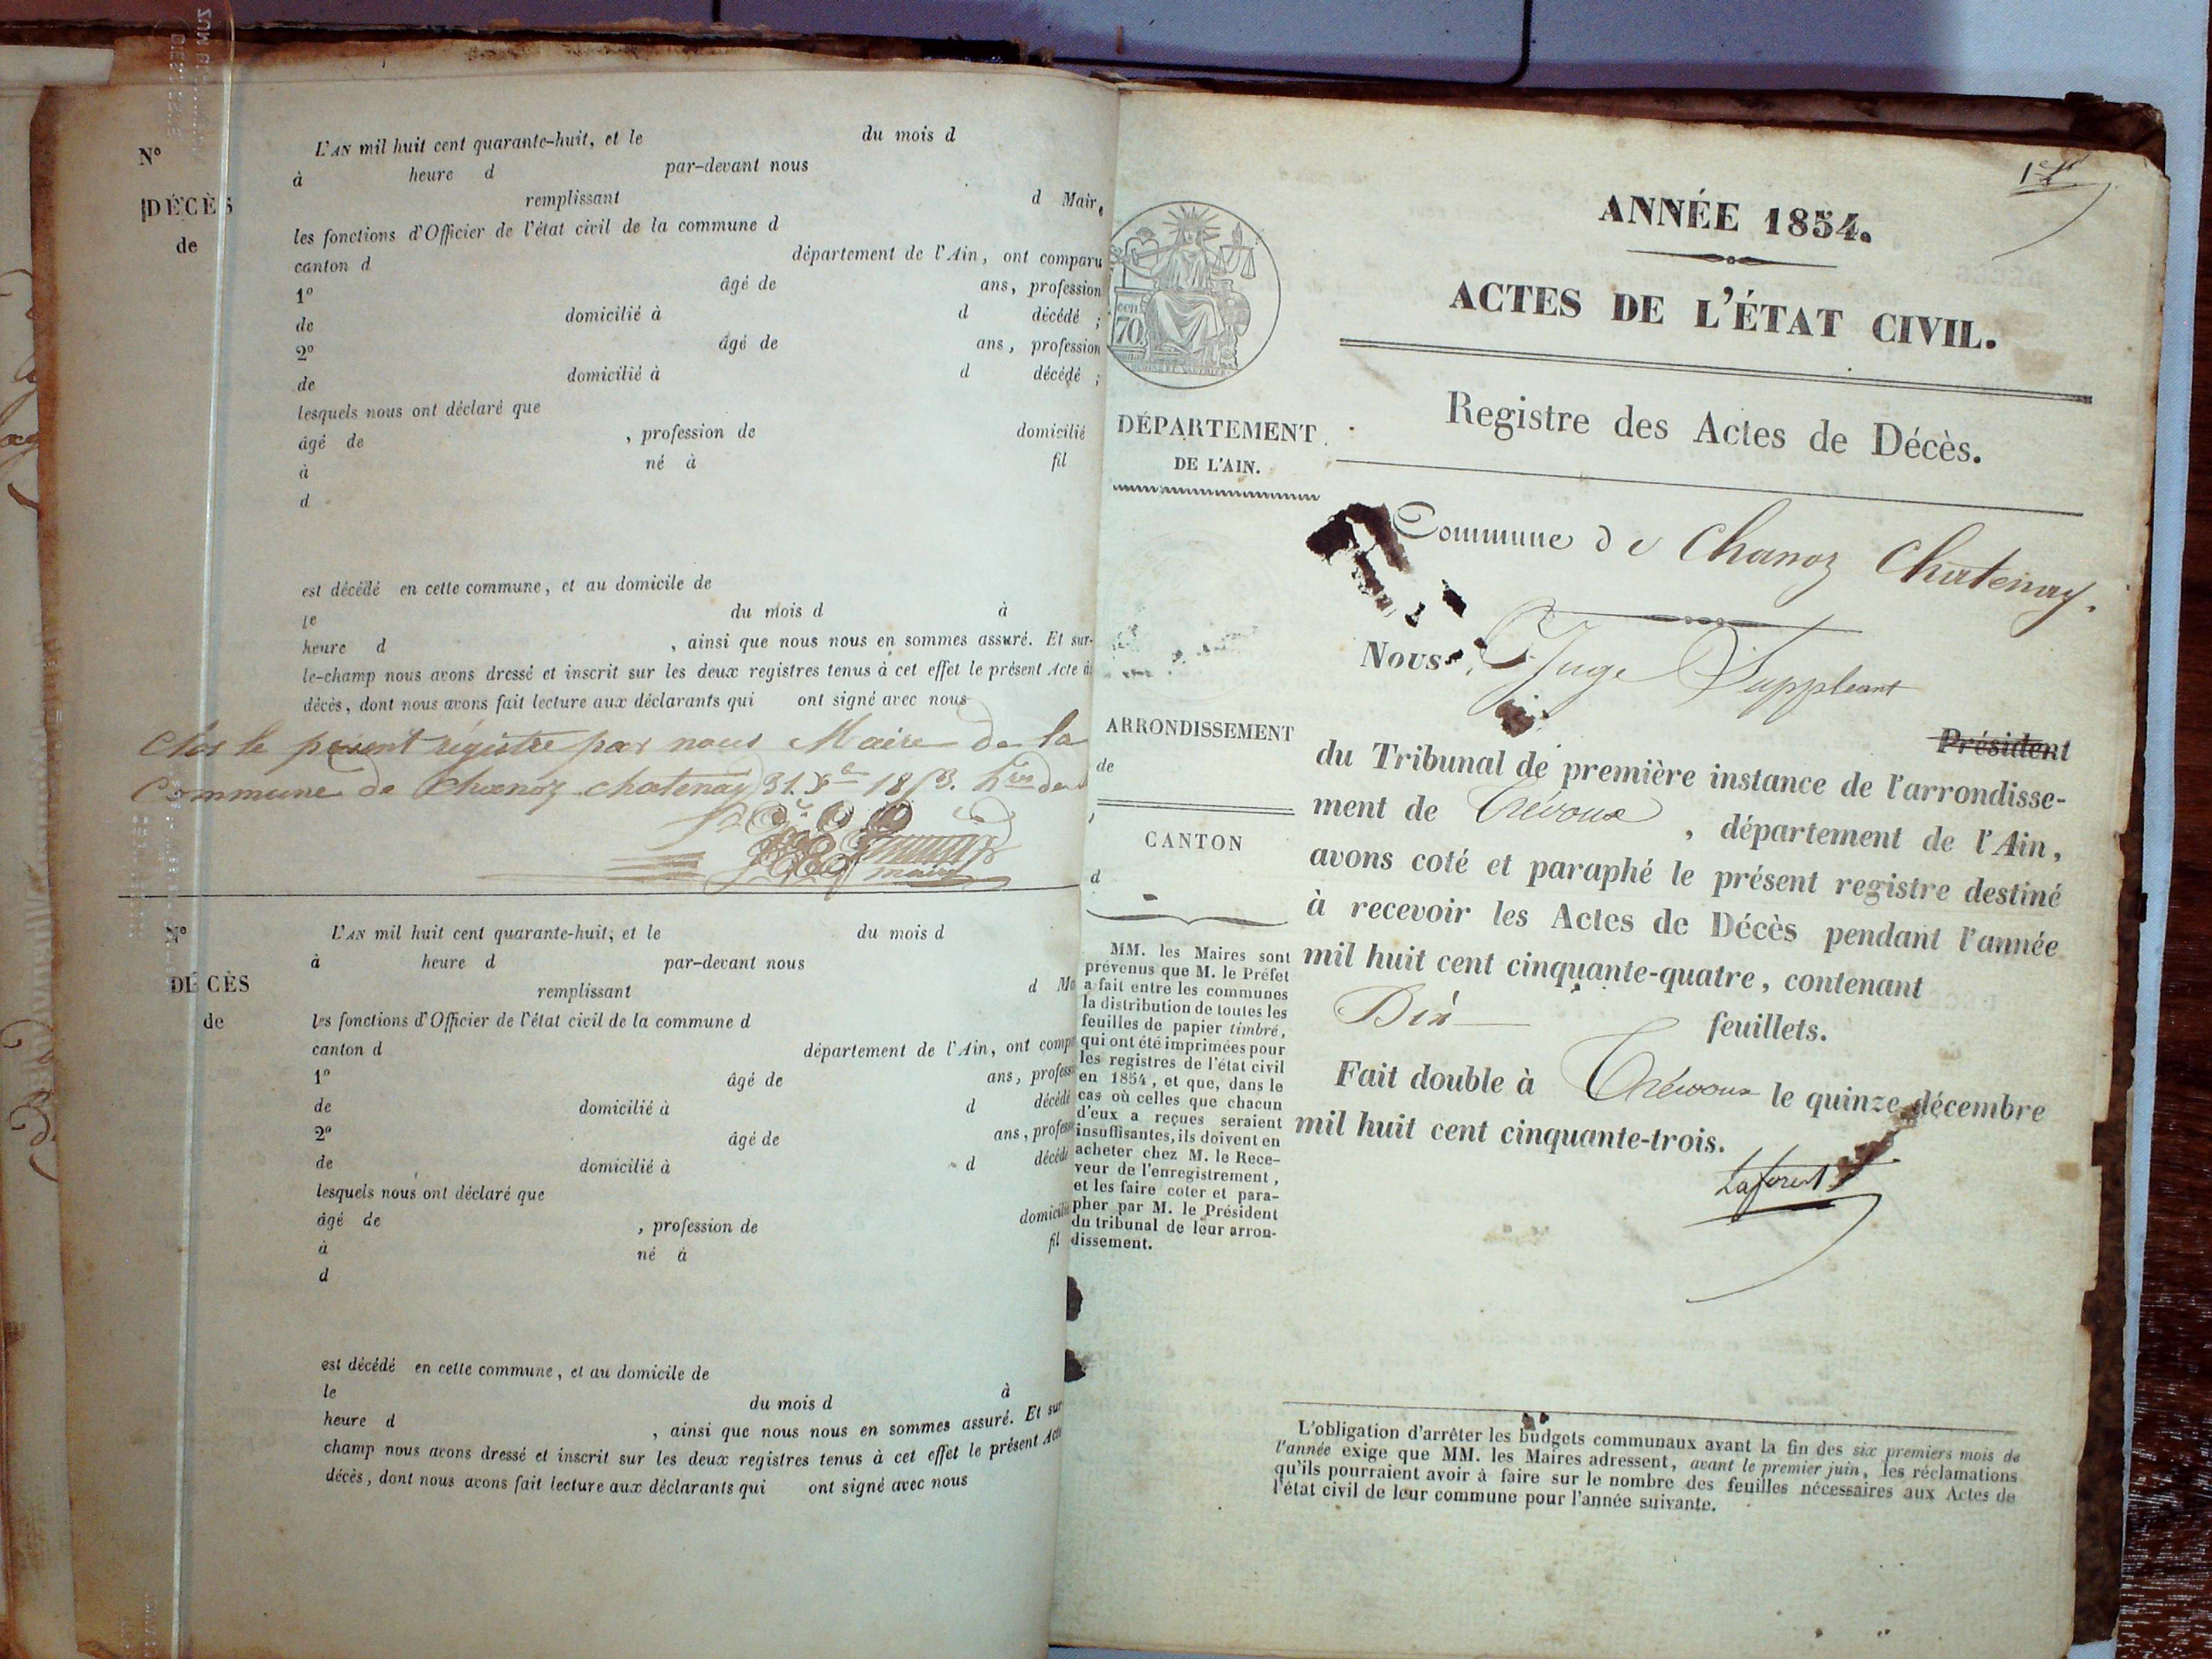 N° L'AN mil huit cent quarante-huit, et le du mois d
à heure d par-devant nous
DÉCÈS remplissant d Maire
de les fonctions d'Officier de l'état civil de la commune d
canton d département de l'Ain, ont comparu
1° âgé de ans, profession
de domicilié à d décédé ;
2° âgé de ans, profession
de domicilié à d décédé ;
lesquels nous ont déclaré que
âgé de , profession de domicilié
à né à fil
d
est décédé en cette commune, et au domicile de
le du mois d à
heure d , ainsi que nous nous en sommes assuré. Et sur-
le-champ nous avons dressé et inscrit sur les deux registres tenus à cet effet le présent Acte de
décès, dont nous avons fait lecture aux déclarants qui ont signé avec nous
Clos le présent régistre par nous Maire de la
Commune de Chanoz chatenay 31. Xbre 1853.
maire
N° L'AN mil huit cent quarante-huit, et le du mois d
à heure d par-devant nous
DÉCÈS remplissant d Ma
de les fonctions d'Officier de l'état civil de la commune d
canton d département de l'Ain, ont comp
1° âgé de ans, profess
de domicilié à d décédé
2° âgé de ans, profess
de domicilié à d décédé
lesquels nous ont déclaré que
âgé de , profession de domicilié
à né à fil
d
est décédé en cette commune, et au domicile de
le du mois d à
heure d , ainsi que nous nous en sommes assuré. Et sur
champ nous avons dressé et inscrit sur les deux registres tenus à cet effet le présent Acte
décès, dont nous avons fait lecture aux déclarants qui ont signé avec nous
1er
ANNÉE 1854.
ACTES DE L'ÉTAT CIVIL.
Registre des Actes de Décès.
70
DÉPARTEMENT
DE L'AIN.
ARRONDISSEMENT
de
CANTON
d
MM. les Maires sont
prévenus que M. le Préfet
a fait entre les communes
la distribution de toutes les
feuilles de papier timbré,
qui ont été imprimées pour
les registres de l'état civil
en 1854, et que, dans le
cas où celles que chacun
d'eux a reçues seraient
insuffisantes, ils doivent en
acheter chez M. le Rece-
veur de l'enregistrement,
et les faire coter et para-
pher par M. le Président
du tribunal de leur arron-
dissement.
Commune de Chanoz Chatenay.
Nous Juge Suppleant
Président
du Tribunal de première instance de l'arrondisse-
ment de Trévoux , département de l'Ain,
avons coté et paraphé le présent registre destiné
à recevoir les Actes de Décès pendant l'année
mil huit cent cinquante-quatre, contenant
Dix feuillets.
Fait double à Trévoux le quinze décembre
mil huit cent cinquante-trois.
Laforest
L'obligation d'arrêter les budgets communaux avant la fin des six premiers mois de
l'année exige que MM. les Maires adressent, avant le premier juin, les réclamations
qu'ils pourraient avoir à faire sur le nombre des feuilles nécessaires aux Actes de
l'état civil de leur commune pour l'année suivante.